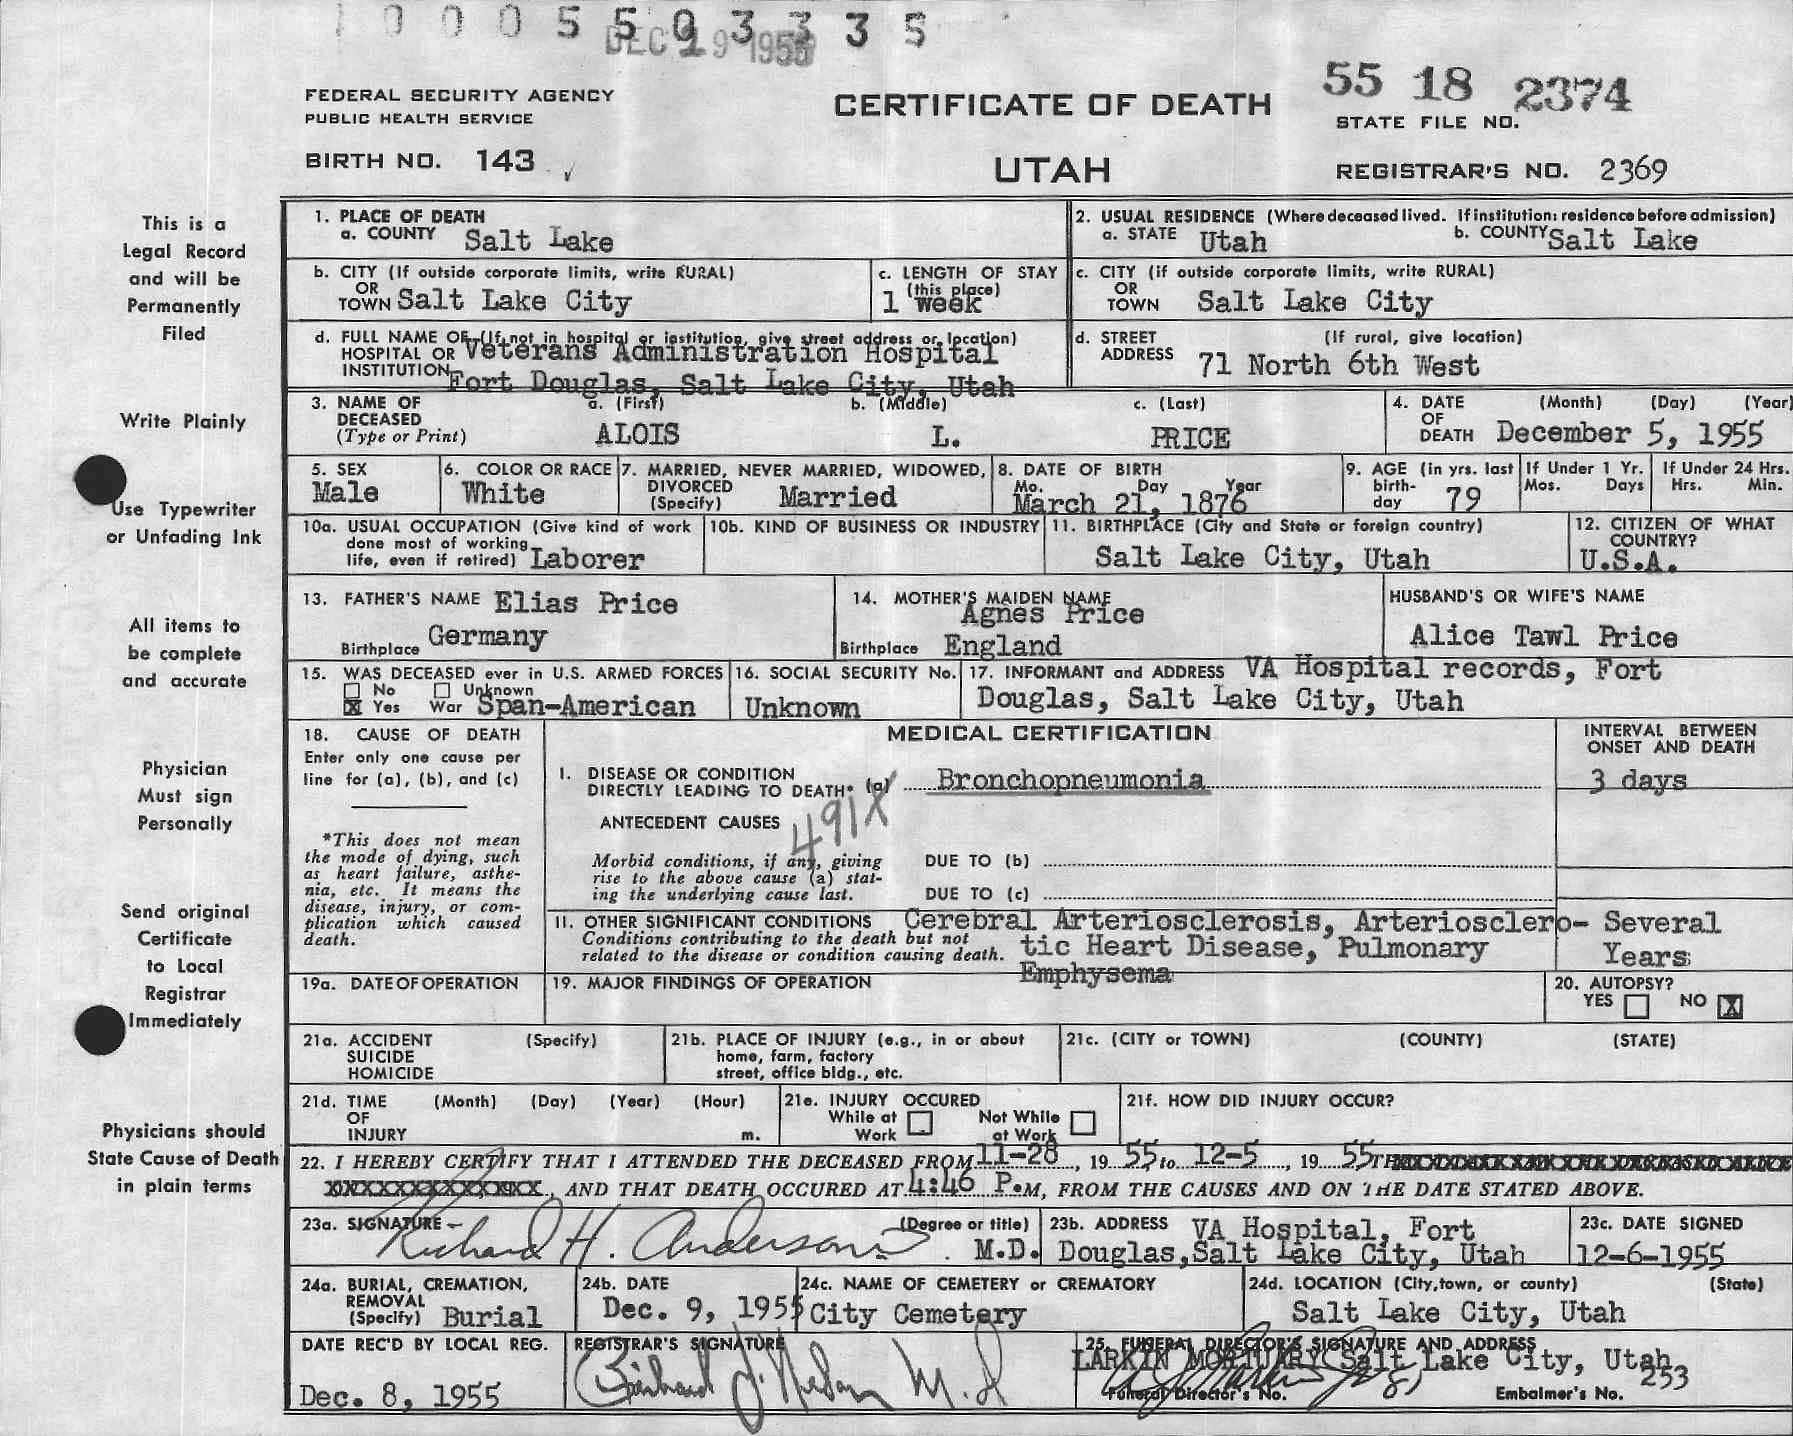 1 0 0 0 5 5 0 3 3 3 5
DEC 19 1955
FEDERAL SECURITY AGENCY
PUBLIC HEALTH SERVICE
BIRTH NO. 143
CERTIFICATE OF DEATH
UTAH
55 18 2374
STATE FILE NO.
REGISTRAR'S NO. 2369
This is a
Legal Record
and will be
Permanently
Filed
Write Plainly
Use Typewriter
or Unfading Ink
All items to
be complete
and accurate
Physician
Must sign
Personally
Send original
Certificate
to Local
Registrar
Immediately
Physicians should
State Cause of Death
in plain terms
1. PLACE OF DEATH
a. COUNTY Salt Lake
2. USUAL RESIDENCE (Where deceased lived. If institution: residence before admission)
a. STATE Utah b. COUNTY Salt Lake
b. CITY (If outside corporate limits, write RURAL)
OR
TOWN Salt Lake City
c. LENGTH OF STAY
(this place)
1 week
c. CITY (if outside corporate limits, write RURAL)
OR
TOWN Salt Lake City
d. FULL NAME OF (If not in hospital or institution, give street address or location)
HOSPITAL OR Veterans Administration Hospital
INSTITUTION Fort Douglas, Salt Lake City, Utah
d. STREET (If rural, give location)
ADDRESS 71 North 6th West
3. NAME OF a. (First) b. (Middle) c. (Last)
DECEASED
(Type or Print) ALOIS L. PRICE
4. DATE (Month) (Day) (Year)
OF
DEATH December 5, 1955
5. SEX
Male
6. COLOR OR RACE
White
7. MARRIED, NEVER MARRIED, WIDOWED,
DIVORCED
(Specify) Married
8. DATE OF BIRTH
Mo. Day Year
March 21, 1876
9. AGE (in yrs. last
birth-
day 79
If Under 1 Yr.
Mos. Days
If Under 24 Hrs.
Hrs. Min.
10a. USUAL OCCUPATION (Give kind of work
done most of working
life, even if retired) Laborer
10b. KIND OF BUSINESS OR INDUSTRY
11. BIRTHPLACE (City and State or foreign country)
Salt Lake City, Utah
12. CITIZEN OF WHAT
COUNTRY?
U.S.A.
13. FATHER'S NAME Elias Price
Birthplace Germany
14. MOTHER'S MAIDEN NAME
Agnes Price
Birthplace England
HUSBAND'S OR WIFE'S NAME
Alice Tawl Price
15. WAS DECEASED ever in U.S. ARMED FORCES
No Unknown
X Yes War Span-American
16. SOCIAL SECURITY No.
Unknown
17. INFORMANT and ADDRESS VA Hospital records, Fort
Douglas, Salt Lake City, Utah
18. CAUSE OF DEATH
Enter only one cause per
line for (a), (b), and (c)
*This does not mean
the mode of dying, such
as heart failure, asthe-
nia, etc. It means the
disease, injury, or com-
plication which caused
death.
MEDICAL CERTIFICATION
INTERVAL BETWEEN
ONSET AND DEATH
I. DISEASE OR CONDITION
DIRECTLY LEADING TO DEATH* (a) Bronchopneumonia 3 days
491X
ANTECEDENT CAUSES
Morbid conditions, if any, giving
rise to the above cause (a) stat-
ing the underlying cause last.
DUE TO (b)
DUE TO (c)
II. OTHER SIGNIFICANT CONDITIONS Cerebral Arteriosclerosis, Arteriosclero- Several
Conditions contributing to the death but not tic Heart Disease, Pulmonary Years
related to the disease or condition causing death. Emphysema
19a. DATE OF OPERATION
19. MAJOR FINDINGS OF OPERATION
20. AUTOPSY?
YES NO X
21a. ACCIDENT (Specify)
SUICIDE
HOMICIDE
21b. PLACE OF INJURY (e.g., in or about
home, farm, factory
street, office bldg., etc.
21c. (CITY or TOWN) (COUNTY) (STATE)
21d. TIME (Month) (Day) (Year) (Hour)
OF
INJURY m.
21e. INJURY OCCURED
While at Not While
Work at Work
21f. HOW DID INJURY OCCUR?
22. I HEREBY CERTIFY THAT I ATTENDED THE DECEASED FROM 11-28, 19 55 to 12-5, 19 55
AND THAT DEATH OCCURED AT 4:46 P.M, FROM THE CAUSES AND ON THE DATE STATED ABOVE.
23a. SIGNATURE (Degree or title)
Richard H. Anderson M.D.
23b. ADDRESS VA Hospital, Fort
Douglas, Salt Lake City, Utah
23c. DATE SIGNED
12-6-1955
24a. BURIAL, CREMATION,
REMOVAL
(Specify) Burial
24b. DATE
Dec. 9, 1955
24c. NAME OF CEMETERY or CREMATORY
City Cemetery
24d. LOCATION (City, town, or county) (State)
Salt Lake City, Utah
DATE REC'D BY LOCAL REG.
Dec. 8, 1955
REGISTRAR'S SIGNATURE
25. FUNERAL DIRECTOR'S SIGNATURE AND ADDRESS
LARKIN MORTUARY Salt Lake City, Utah
Funeral Director's No. 81 Embalmer's No. 253